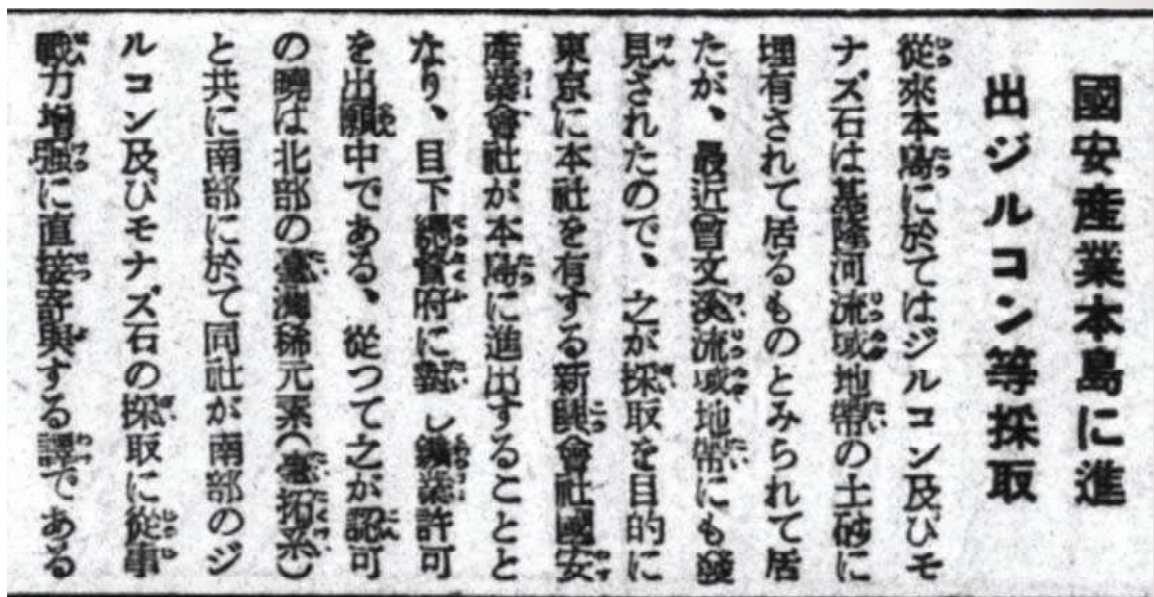 國安産業本島に進
出ジルコン等採取
從來本島に於てはジルコン及びモ
ナズ石は基隆河流域地帶の土砂に
埋有されて居るものとみられて居
たが、最近曾文溪流域地帶にも發
見されたので、之が採取を目的に
東京に本社を有する新興會社國安
産業會社が本島に進出することと
なり、目下總督府に對し鑛業許可
を出願中である、從つて之が認可
の曉は北部の臺灣稀元素(臺拓系)
と共に南部に於て同社が南部のジ
ルコン及びモナズ石の採取に從事
戰力增強に直接寄與する譯である